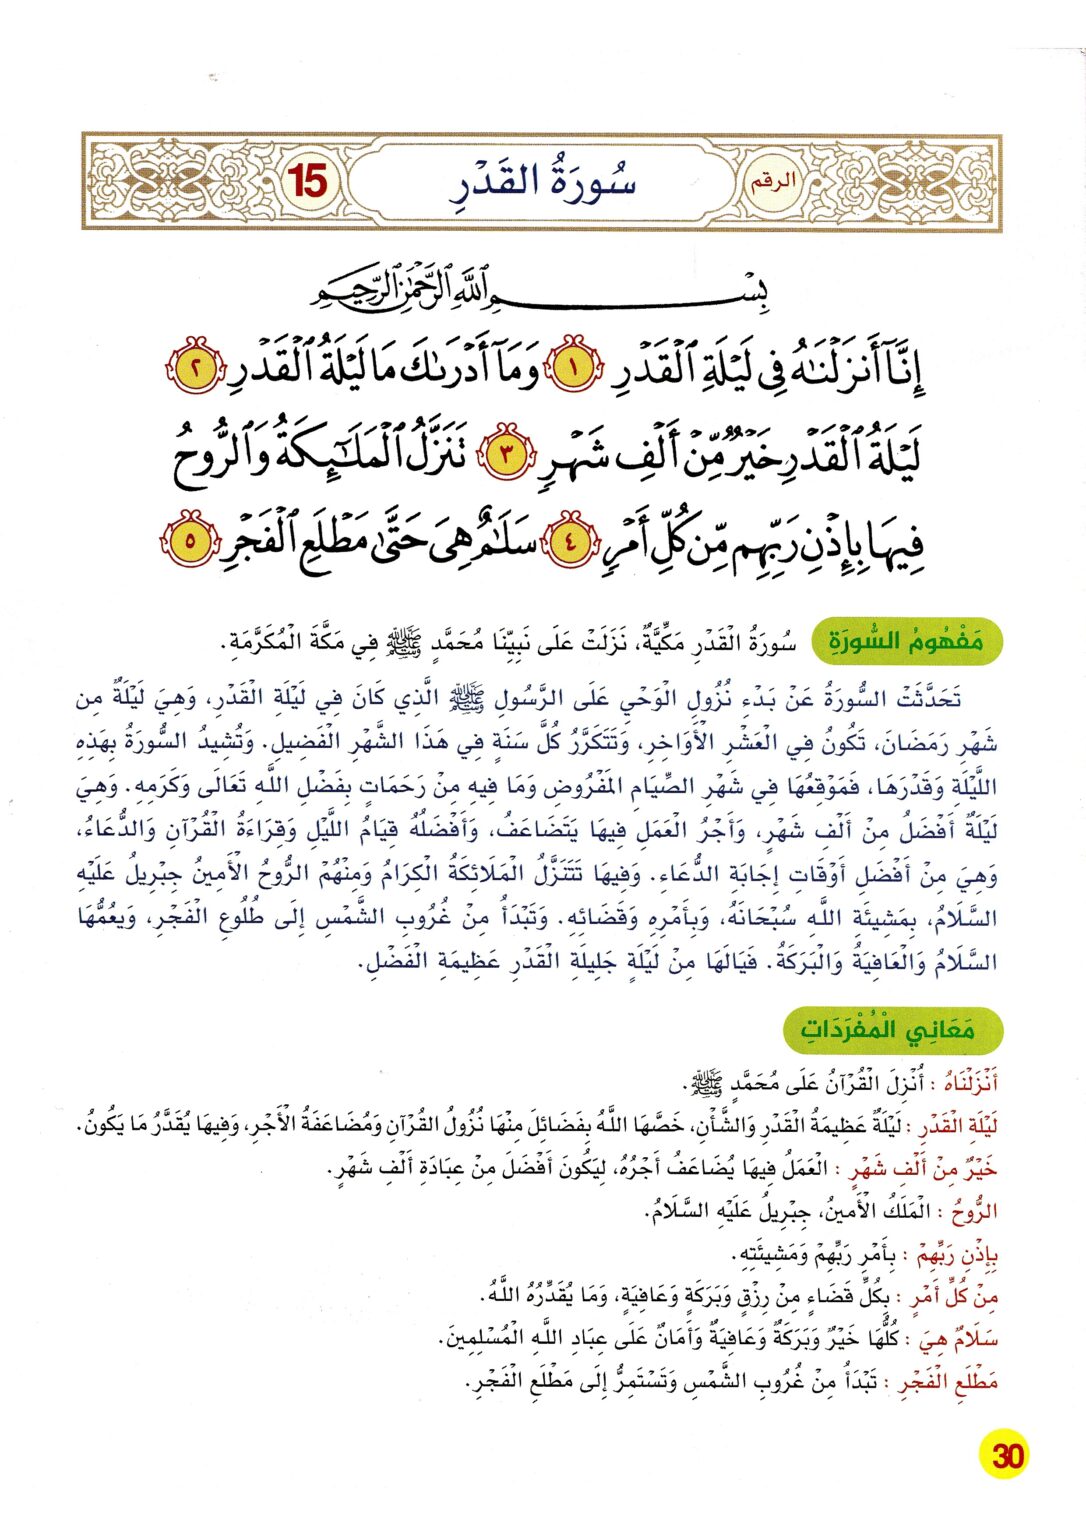 الرقم
سُورَةُ القَدْرِ
15
بِسْمِ اللَّهِ الرَّحْمَٰنِ الرَّحِيمِ
إِنَّآ أَنزَلْنَٰهُ فِى لَيْلَةِ ٱلْقَدْرِ ١ وَمَآ أَدْرَىٰكَ مَا لَيْلَةُ ٱلْقَدْرِ ٢
لَيْلَةُ ٱلْقَدْرِ خَيْرٌ مِّنْ أَلْفِ شَهْرٍ ٣ تَنَزَّلُ ٱلْمَلَٰٓئِكَةُ وَٱلرُّوحُ
فِيهَا بِإِذْنِ رَبِّهِم مِّن كُلِّ أَمْرٍ ٤ سَلَٰمٌ هِىَ حَتَّىٰ مَطْلَعِ ٱلْفَجْرِ ٥
مَفْهُومُ السُّورَةِ سُورَةُ القَدْرِ مَكِّيَّةٌ، نَزَلَتْ عَلَى نَبِيِّنَا مُحَمَّدٍ ﷺ فِي مَكَّةَ المُكَرَّمَةِ.
تَحَدَّثَتْ السُّورَةُ عَنْ بَدْءِ نُزُولِ الْوَحْيِ عَلَى الرَّسُولِ ﷺ الَّذِي كَانَ فِي لَيْلَةِ القَدْرِ، وَهِيَ لَيْلَةٌ مِن
شَهْرِ رَمَضَانَ، تَكُونُ فِي العَشْرِ الأَوَاخِرِ، وَتَتَكَرَّرُ كُلَّ سَنَةٍ فِي هَذَا الشَّهْرِ الْفَضِيلِ. وَتُشِيدُ السُّورَةُ بِهَذِهِ
اللَّيْلَةِ وَقَدْرِهَا، فَمَوْقِعُهَا فِي شَهْرِ الصِّيَامِ المَفْرُوضِ وَمَا فِيهِ مِنْ رَحَمَاتٍ بِفَضْلِ اللَّهِ تَعَالَى وَكَرَمِهِ. وَهِيَ
لَيْلَةٌ أَفْضَلُ مِنْ أَلْفِ شَهْرٍ، وَأَجْرُ العَمَلِ فِيهَا يَتَضَاعَفُ، وَأَفْضَلُهُ قِيَامُ اللَّيْلِ وَقِرَاءَةُ الْقُرْآنِ وَالدُّعَاءُ،
وَهِيَ مِنْ أَفْضَلِ أَوْقَاتِ إِجَابَةِ الدُّعَاءِ. وَفِيهَا تَتَنَزَّلُ الْمَلَائِكَةُ الْكِرَامُ وَمِنْهُمْ الرُّوحُ الْأَمِينُ جِبْرِيلُ عَلَيْهِ
السَّلَامُ، بِمَشِيئَةِ اللَّهِ سُبْحَانَهُ، وَبِأَمْرِهِ وَقَضَائِهِ. وَتَبْدَأُ مِنْ غُرُوبِ الشَّمْسِ إِلَى طُلُوعِ الْفَجْرِ، وَيَعُمُّهَا
السَّلَامُ وَالْعَافِيَةُ وَالْبَرَكَةُ. فَيَالَهَا مِنْ لَيْلَةٍ جَلِيلَةِ الْقَدْرِ عَظِيمَةِ الْفَضْلِ.
مَعَانِي الْمُفْرَدَاتِ
أَنْزَلْنَاهُ : أُنْزِلَ الْقُرْآنُ عَلَى مُحَمَّدٍ ﷺ.
لَيْلَةِ الْقَدْرِ : لَيْلَةٌ عَظِيمَةُ الْقَدْرِ وَالشَّأْنِ، خَصَّهَا اللَّهُ بِفَضَائِلَ مِنْهَا نُزُولُ القُرْآنِ وَمُضَاعَفَةُ الأَجْرِ، وَفِيهَا يُقَدَّرُ مَا يَكُونُ.
خَيْرٌ مِنْ أَلْفِ شَهْرٍ : الْعَمَلُ فِيهَا يُضَاعَفُ أَجْرُهُ، لِيَكُونَ أَفْضَلَ مِنْ عِبَادَةِ أَلْفِ شَهْرٍ.
الرُّوحُ : الْمَلَكُ الْأَمِينُ، جِبْرِيلُ عَلَيْهِ السَّلَامُ.
بِإِذْنِ رَبِّهِمْ : بِأَمْرِ رَبِّهِمْ وَمَشِيئَتِهِ.
مِنْ كُلِّ أَمْرٍ : بِكُلِّ قَضَاءٍ مِنْ رِزْقٍ وَبَرَكَةٍ وَعَافِيَةٍ، وَمَا يُقَدِّرُهُ اللَّهُ.
سَلَامٌ هِيَ : كُلُّهَا خَيْرٌ وَبَرَكَةٌ وَعَافِيَةٌ وَأَمَانٌ عَلَى عِبَادِ اللَّهِ الْمُسْلِمِينَ.
مَطْلَعِ الْفَجْرِ : تَبْدَأُ مِنْ غُرُوبِ الشَّمْسِ وَتَسْتَمِرُّ إِلَى مَطْلَعِ الْفَجْرِ.
30